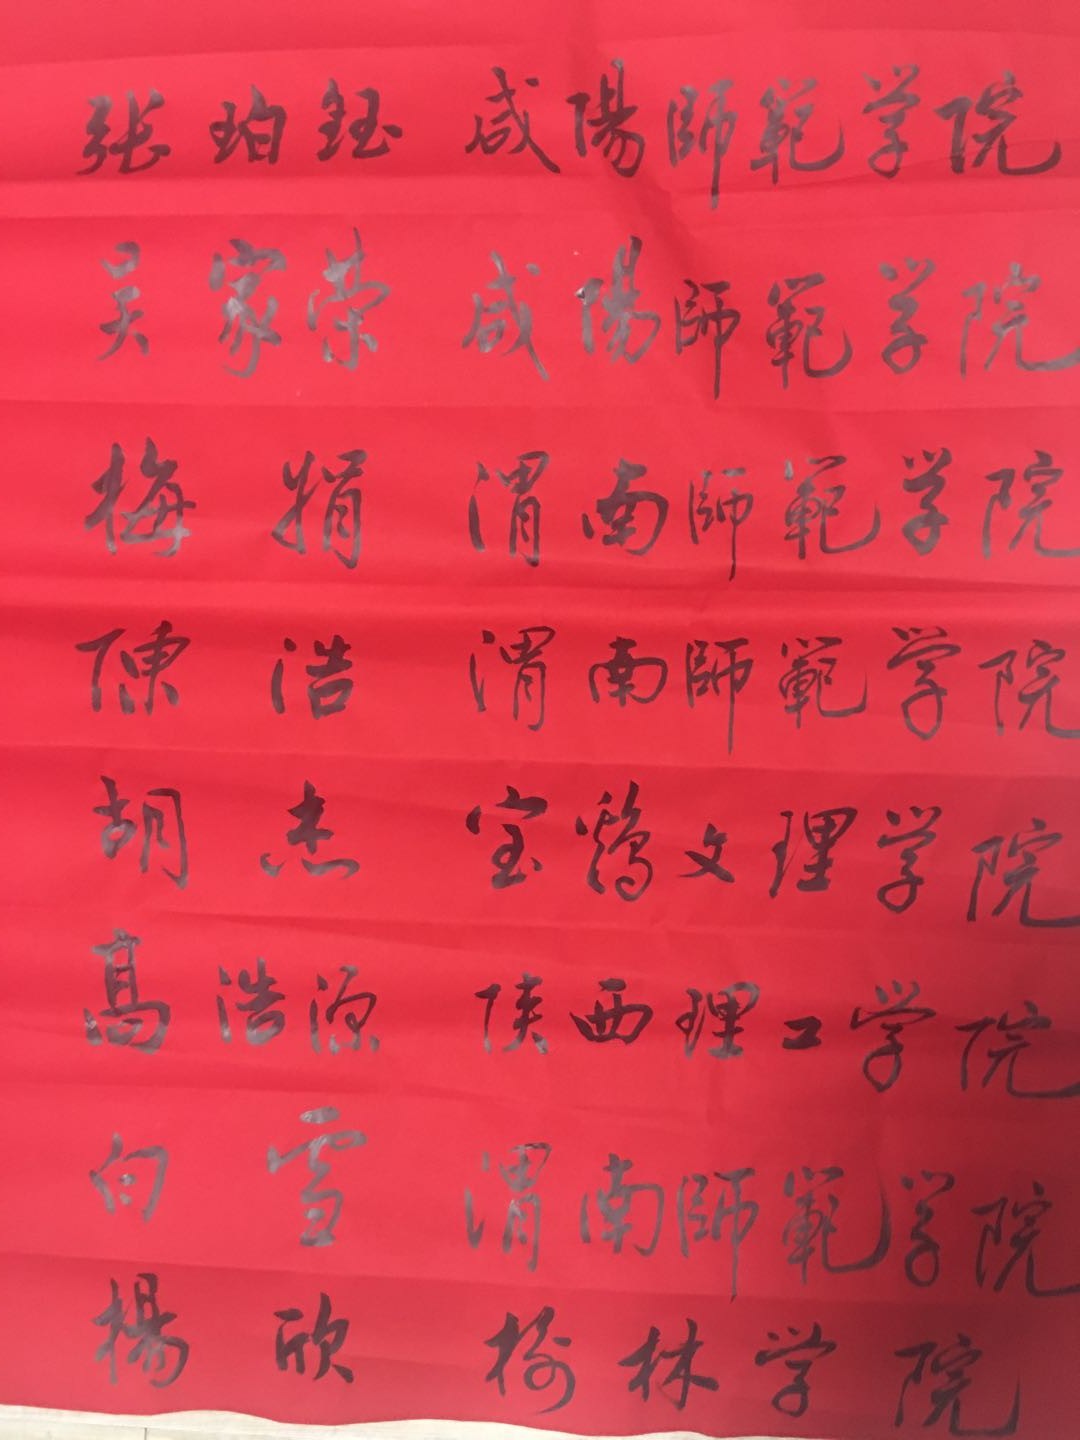 张珀鈺 咸陽師範学院
吴家荣 咸陽師範学院
梅娟 渭南師範学院
陳浩 渭南師範学院
胡杰 宝鷄文理学院
髙浩源 陕西理工学院
白雪 渭南師範学院
楊欣 榆林学院